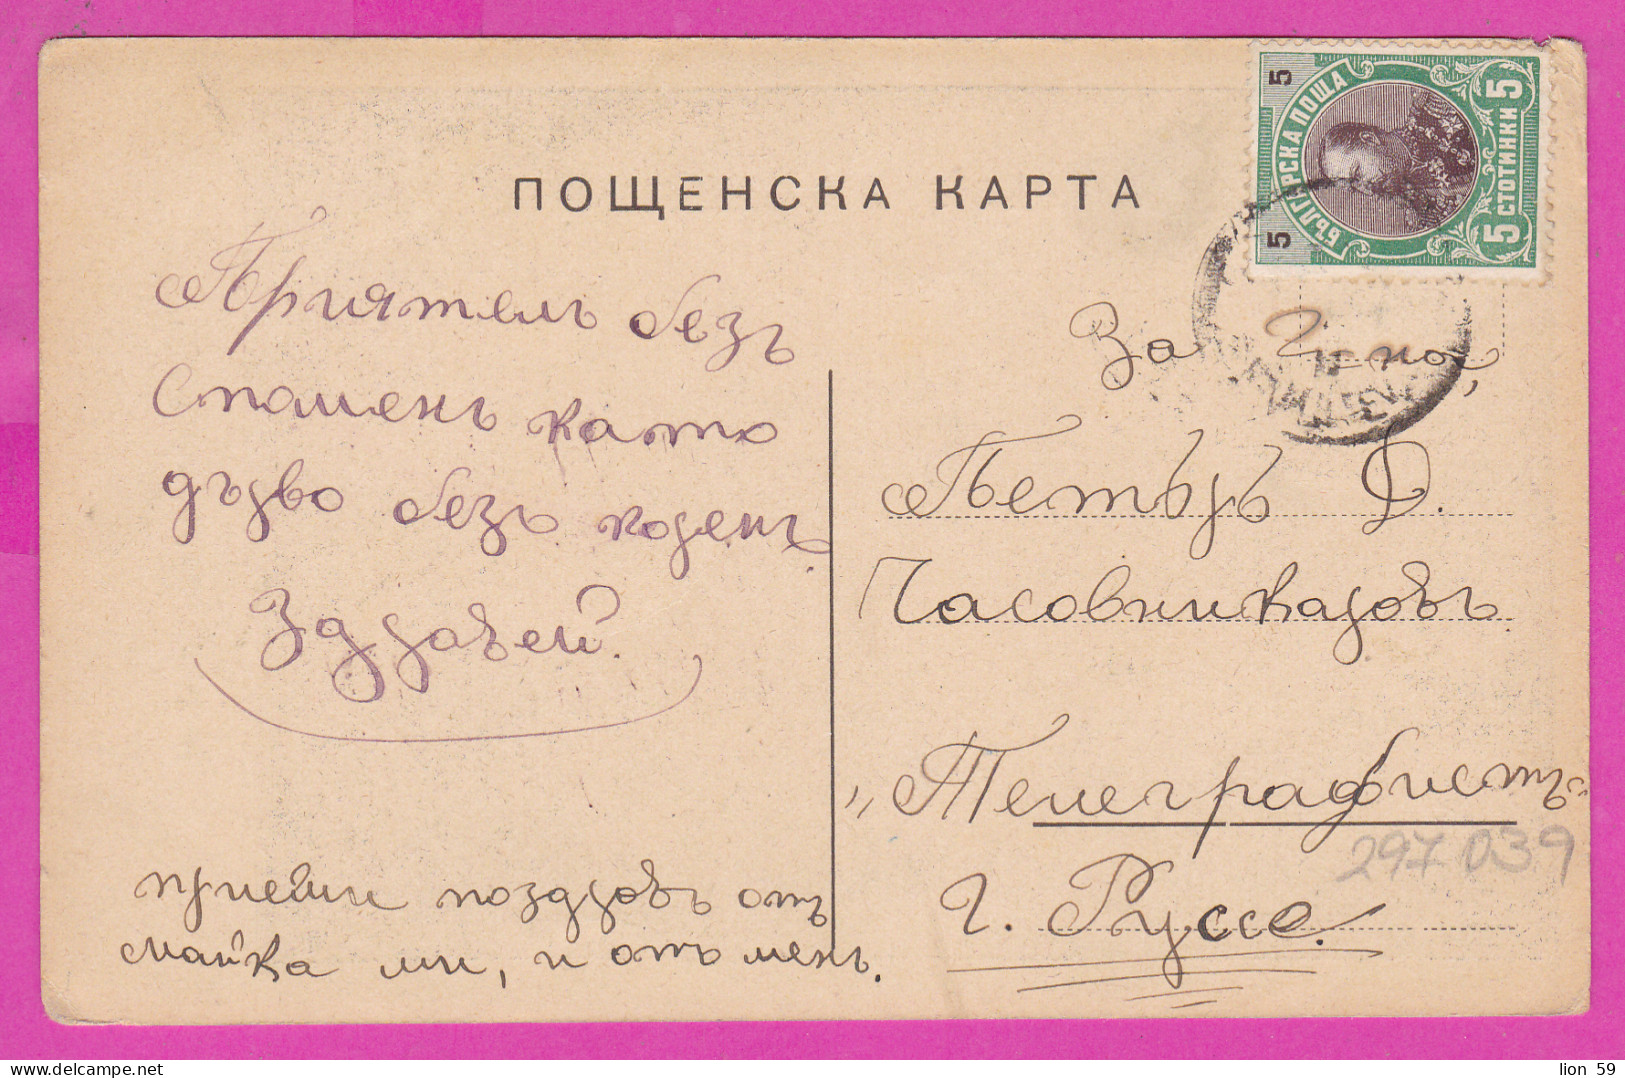 ПОЩЕНСКА КАРТА
БЪЛГАРСКА ПОЩА
5 5
5 СТОТИНКИ 5
Приятель безъ
споменъ като
дърво безъ коренъ
Здравей.
приеми поздравъ отъ
майка ми, и отъ менъ.
За Г-нъ
Петъръ D.
Часовникаровъ
„Телеграфистъ"
г. Руссе.
297039
lion 59